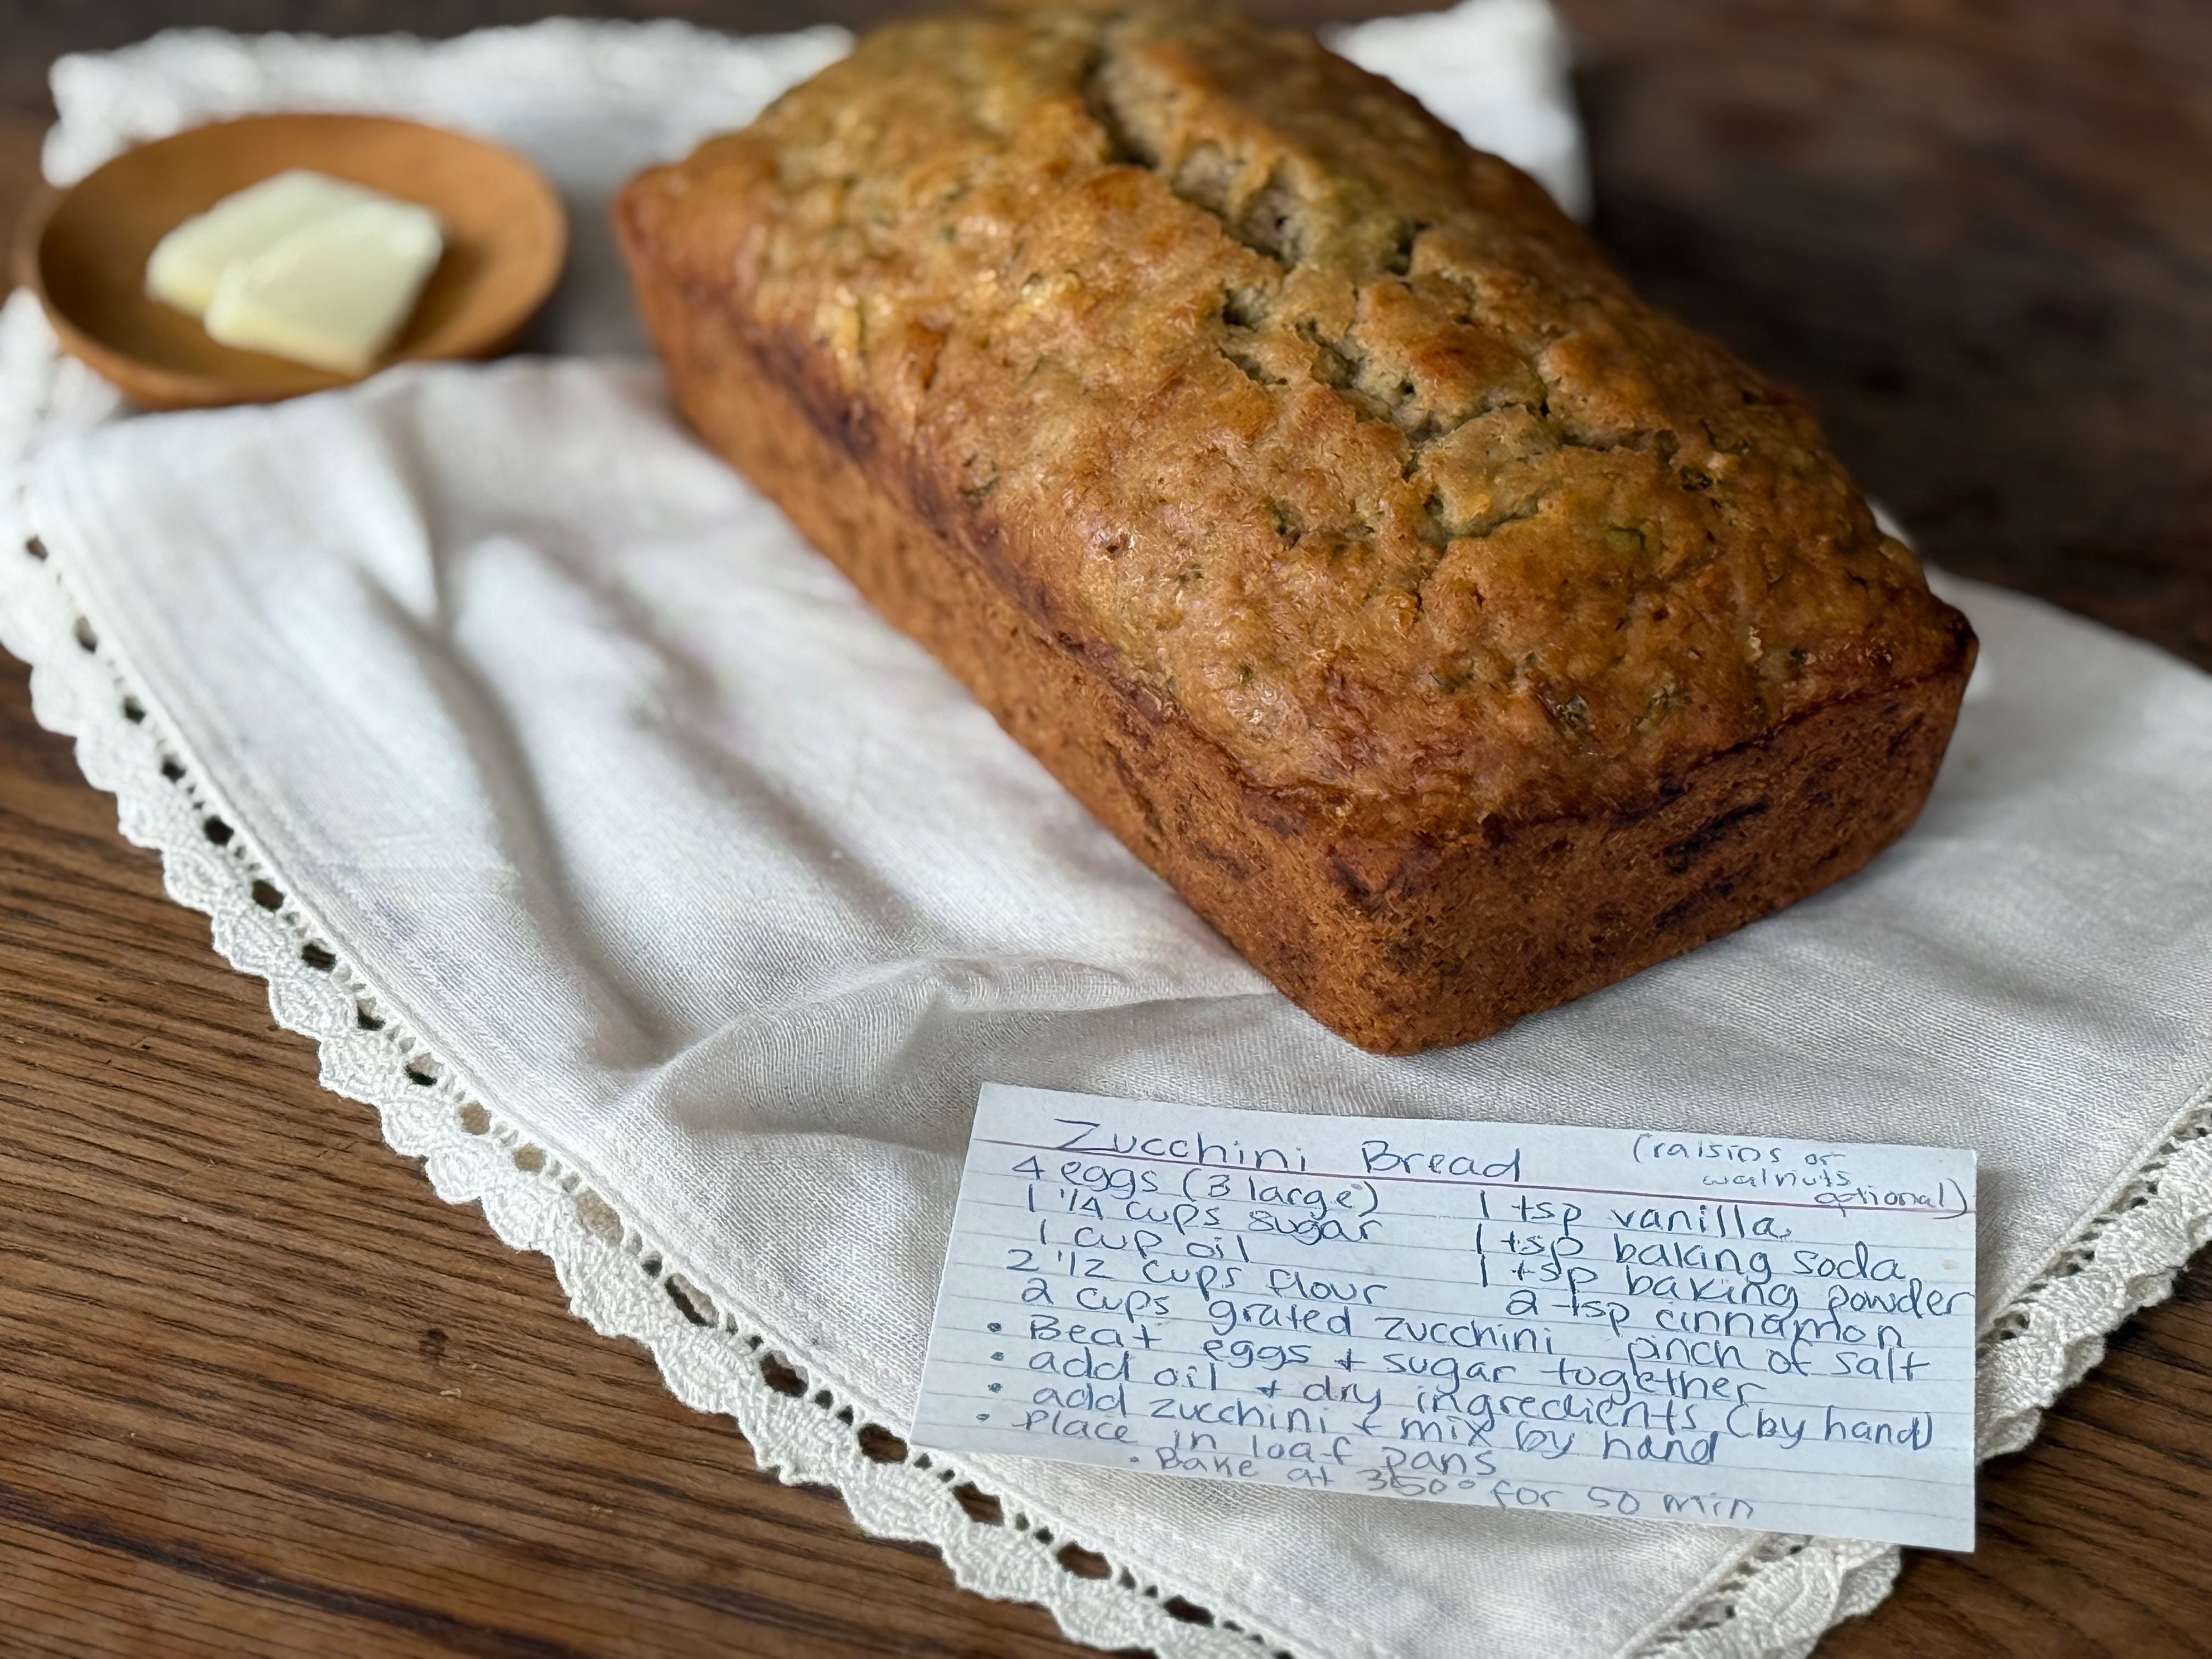 Zucchini Bread (raisins or
walnuts
optional)
4 eggs (3 large)
1 1/4 cups sugar
1 cup oil
2 1/2 cups flour
2 cups grated zucchini
1 tsp vanilla
1 tsp baking soda
1 tsp baking powder
2 tsp cinnamon
pinch of salt
• Beat eggs + sugar together
• add oil + dry ingredients (by hand)
• add zucchini + mix by hand
• Place in loaf pans
• Bake at 350° for 50 min